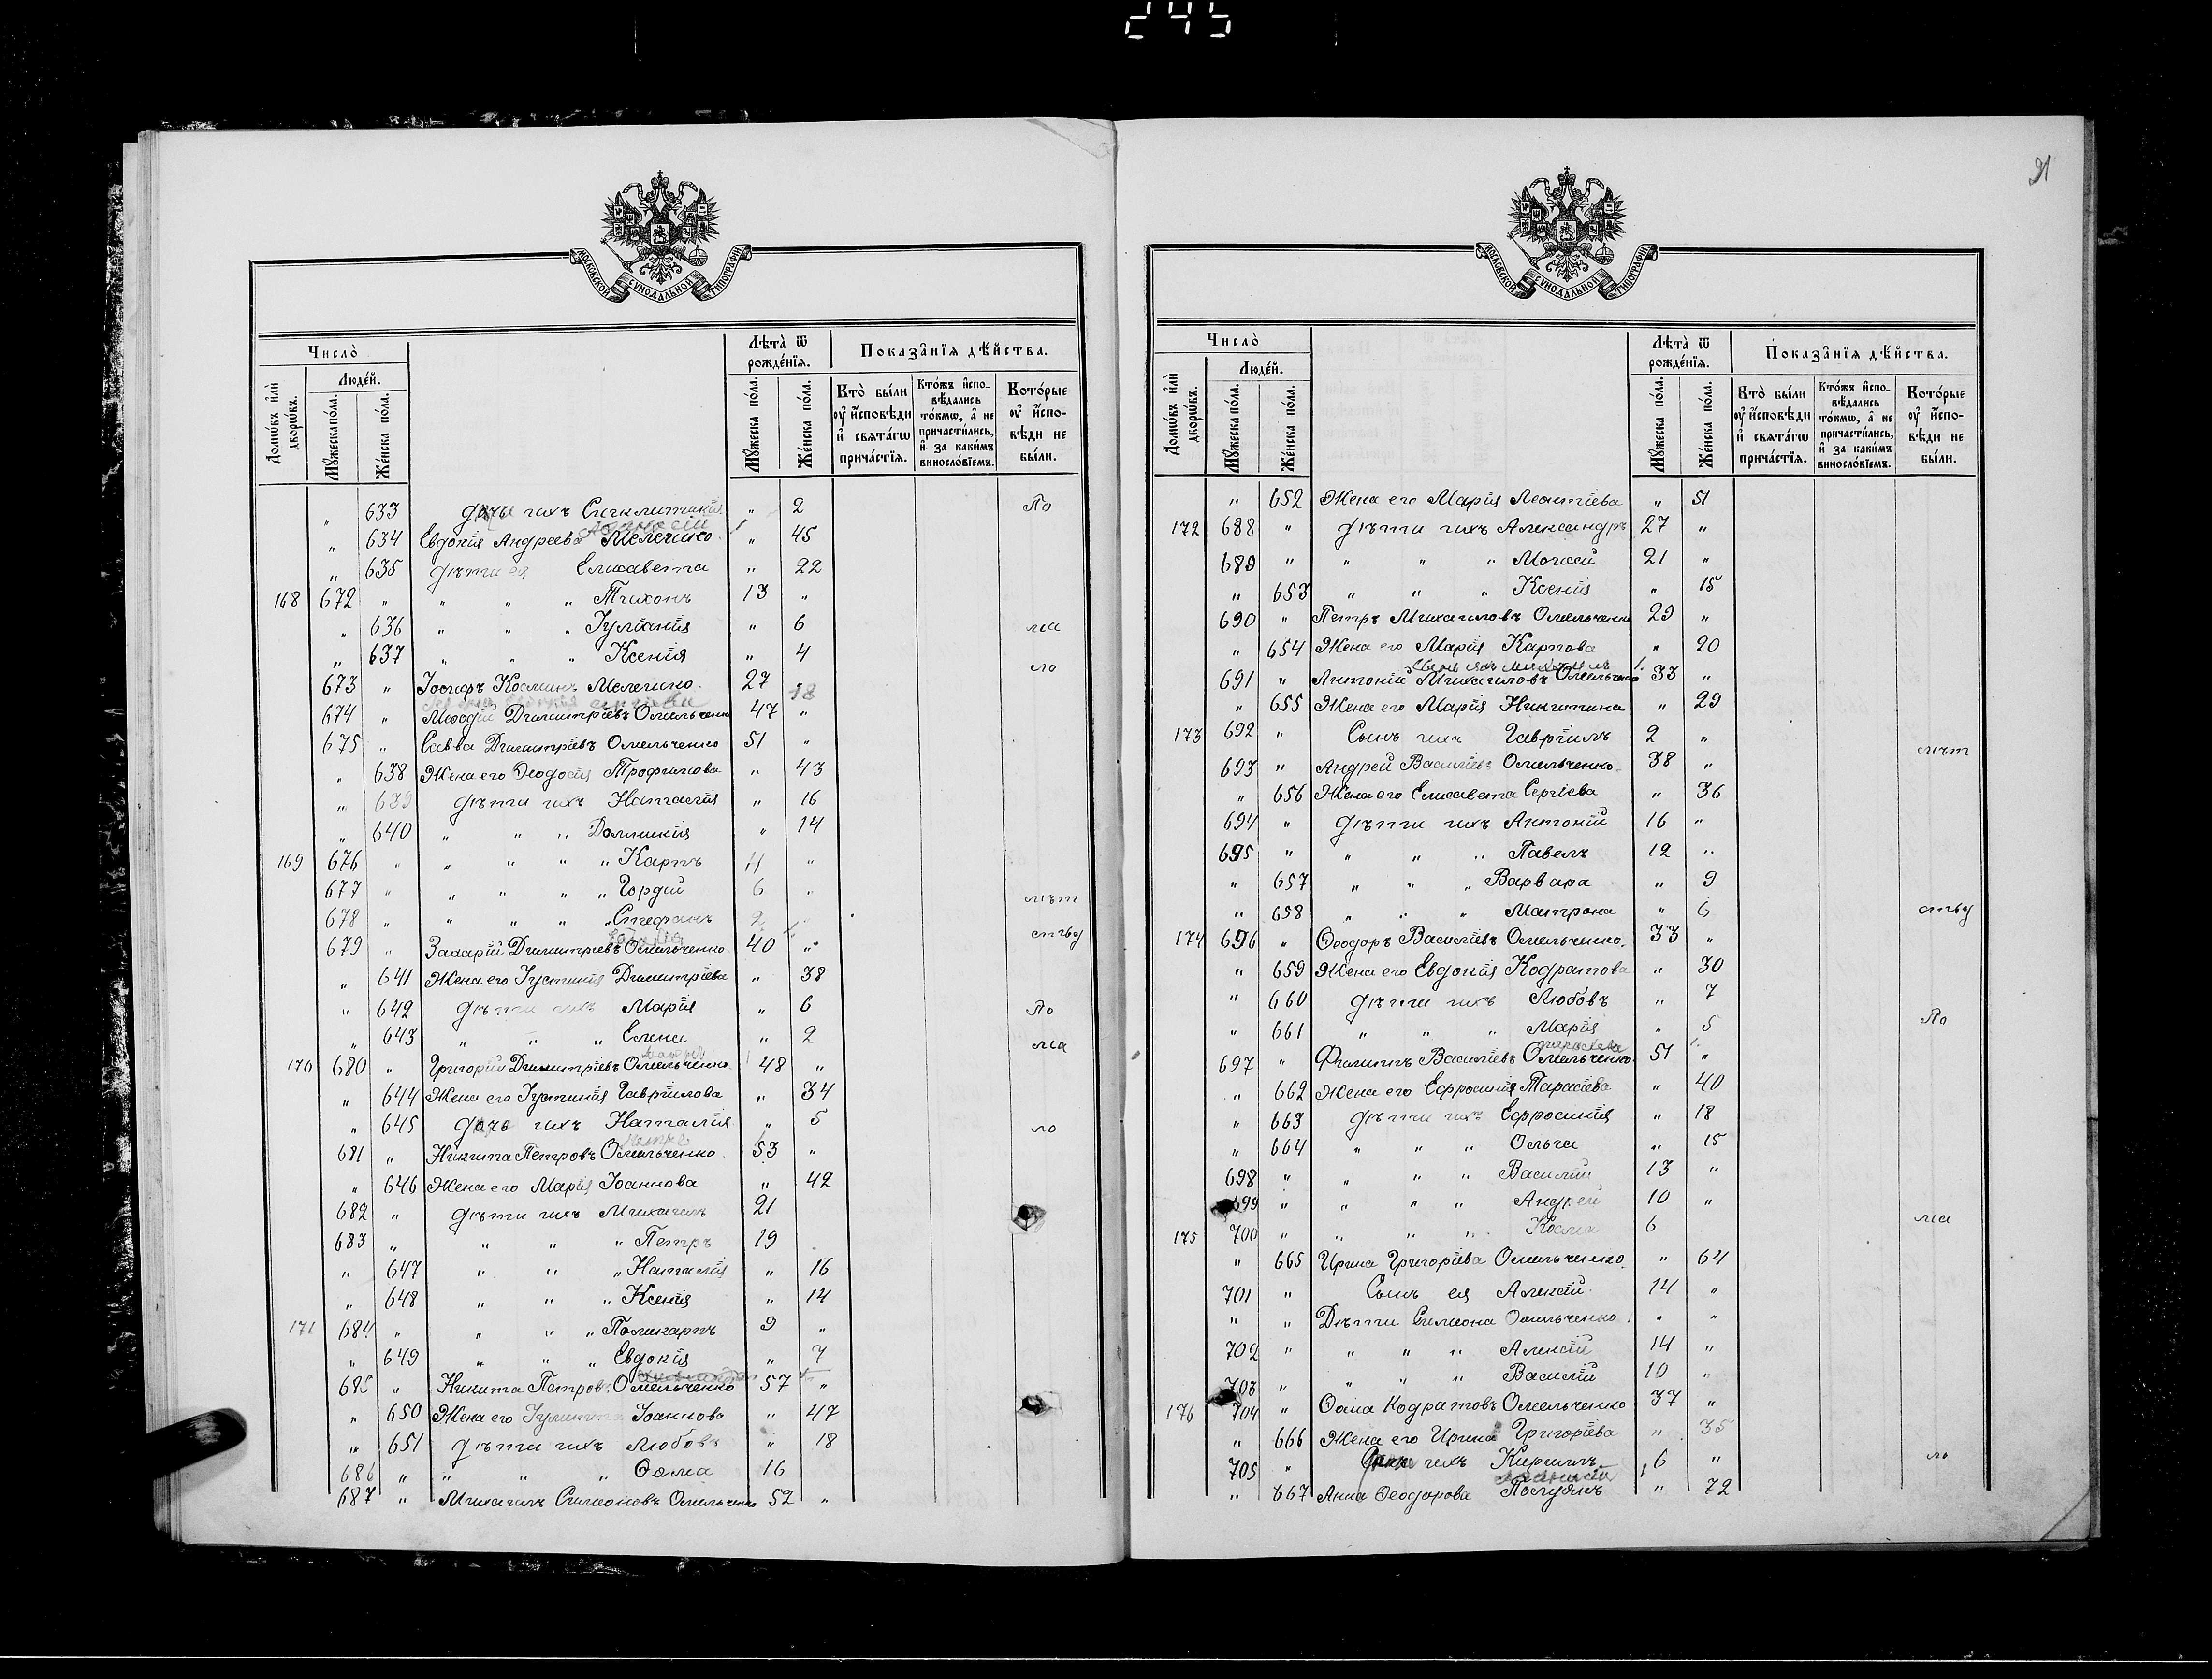 245
21
МОСКОВСКОЙ СѴНОДАЛЬНОЙ ТИПОГРАФІИ
Число̀
Домѡвъ и҆лѝ дворѡвъ.
Люде́й.
Мꙋ́жеска по́ла.
Же́нска по́ла.
Лѣта̀ ѿ рожде́нїѧ.
Мꙋ́жеска по́ла.
Же́нска по́ла.
Показа̑нїѧ дѣ́йства.
Кто̀ бы́ли ᲂу҆ и҆́сповѣди и҆ свѧта́гѡ прича́стїѧ.
Кто́жъ и҆спо-вѣ́дались то́кмѡ, а҆ не причасти́лись, и҆ за каки́мъ винословїемъ.
Кото́рые ᲂу҆ и҆́спо-вѣди не бы́ли.
" 633 дочь ихъ Сигклитикія " 2 По
" 634 Евдокія Андреева Мелечико " 45
" 635 дѣти ея Елисавета " 22
168 672 " " " " Тихонъ 13 "
" 636 " " " Іуліанія " 6
" 637 " " " Ксенія " 4
673 " Іосифъ Космынъ Мелечико 27 18
674 " Меѳодій Димитріевъ Омельченко 47 "
675 " Савва Димитріевъ Омельченко 51 "
" 638 Жена его Ѳеодосія Трофимова " 43
" 639 дѣти ихъ Наталія " 16
" 640 " " " Домникія " 14
169 676 " " " " " Карпъ 11 "
677 " " " " " Гордій 6 "
678 " " " " " Стефанъ 2 "
679 " Захарій Димитріевъ Омельченко 40 "
" 641 Жена его Іустинія Димитріева " 38
" 642 дѣти ихъ Марія " 6 По
" 643 " " " Елена " 2
170 680 " Григорій Димитріевъ Омельченко 48 "
" 644 Жена его Іустинія Гавріилова " 34
" 645 дочь ихъ Наталія " 5
681 " Никита Петровъ Омельченко 53 "
" 646 Жена его Марія Іоаннова " 42
682 " дѣти ихъ Михаилъ 21
683 " " " " Петръ 19
" 647 " " " Наталія " 16
" 648 " " " Ксенія " 14
171 684 " " " " Поликарпъ 9 "
" 649 " " " Евдокія " 7
685 " Никита Петровъ Омельченко 57 "
" 650 Жена его Іулитта Іоаннова " 47
" 651 дѣти ихъ Любовь " 18
686 " " " " Ѳома 16
687 " Михаилъ Симеоновъ Омельченко 52 "
МОСКОВСКОЙ СѴНОДАЛЬНОЙ ТИПОГРАФІИ
Число̀
Домѡвъ и҆лѝ дворѡвъ.
Люде́й.
Мꙋ́жеска по́ла.
Же́нска по́ла.
Лѣта̀ ѿ рожде́нїѧ.
Мꙋ́жеска по́ла.
Же́нска по́ла.
Показа̑нїѧ дѣ́йства.
Кто̀ бы́ли ᲂу҆ и҆́сповѣди и҆ свѧта́гѡ прича́стїѧ.
Кто́жъ и҆спо-вѣ́дались то́кмѡ, а҆ не причасти́лись, и҆ за каки́мъ винословїемъ.
Кото́рые ᲂу҆ и҆́спо-вѣди не бы́ли.
" 652 Жена его Марія Леонтіева " 51
172 688 " дѣти ихъ Александръ 27 "
689 " " " " Моисей 21 "
" 653 " " " Ксенія " 15
690 " Петръ Михаиловъ Омельченко 29 "
" 654 Жена его Марія Карпова " 20
691 " Антоній Михаиловъ Омельченко 33 "
" 655 Жена его Марія Никитина " 29
173 692 " Сынъ ихъ Гавріилъ 2 "
693 " Андрей Василіевъ Омельченко 38 "
" 656 Жена его Елисавета Сергіева " 36
694 " дѣти ихъ Антоній 16 "
695 " " " " Павелъ 12 "
" 657 " " " Варвара " 9
" 658 " " " Матрона " 6
174 696 " Ѳеодоръ Василіевъ Омельченко 33 "
" 659 Жена его Евдокія Кодратова " 30
" 660 дѣти ихъ Любовь " 7
" 661 " " " Марія " 5 По
697 " Филиппъ Василіевъ Омельченко 51 "
" 662 Жена его Ефросинія Тарасіева " 40
" 663 дѣти ихъ Ефросинія " 18
" 664 " " " Ольга " 15
698 " " " " Василій 13 "
699 " " " " Андрей 10 "
175 700 " " " " Косма 6
" 665 Ирина Григоріева Омельченко " 64
701 " Сынъ ея Алексій 14 "
" " Дѣти Симеона Омельченко " "
702 " " " " Алексій 14 "
703 " " " " Василій 10 "
176 704 " Ѳома Кодратовъ Омельченко 37 "
" 666 Жена его Ирина Григоріева " 35
705 " Сынъ ихъ Кириллъ 6 "
" 667 Анна Ѳеодорова Полуянъ " 72